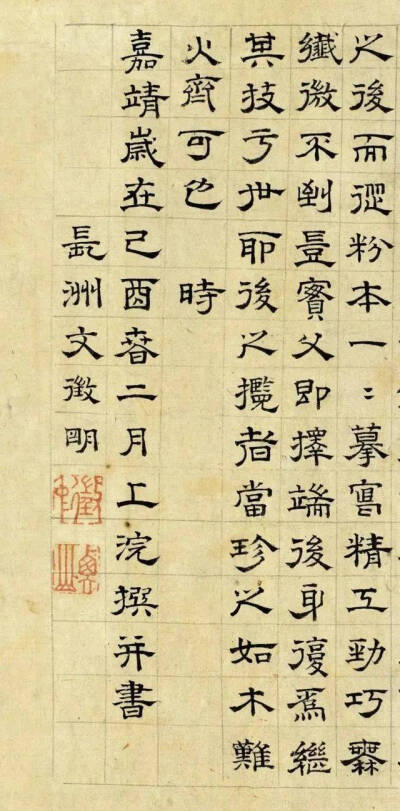 之後而從粉本一〻摹寫精工勁巧靡
纖微不到豈實父即擇端後身復爲繼
其技亏世耶後之攬者當珍之如木難
火齊可也 時
嘉靖歲在己酉春二月上浣撰并書
長洲文徵明